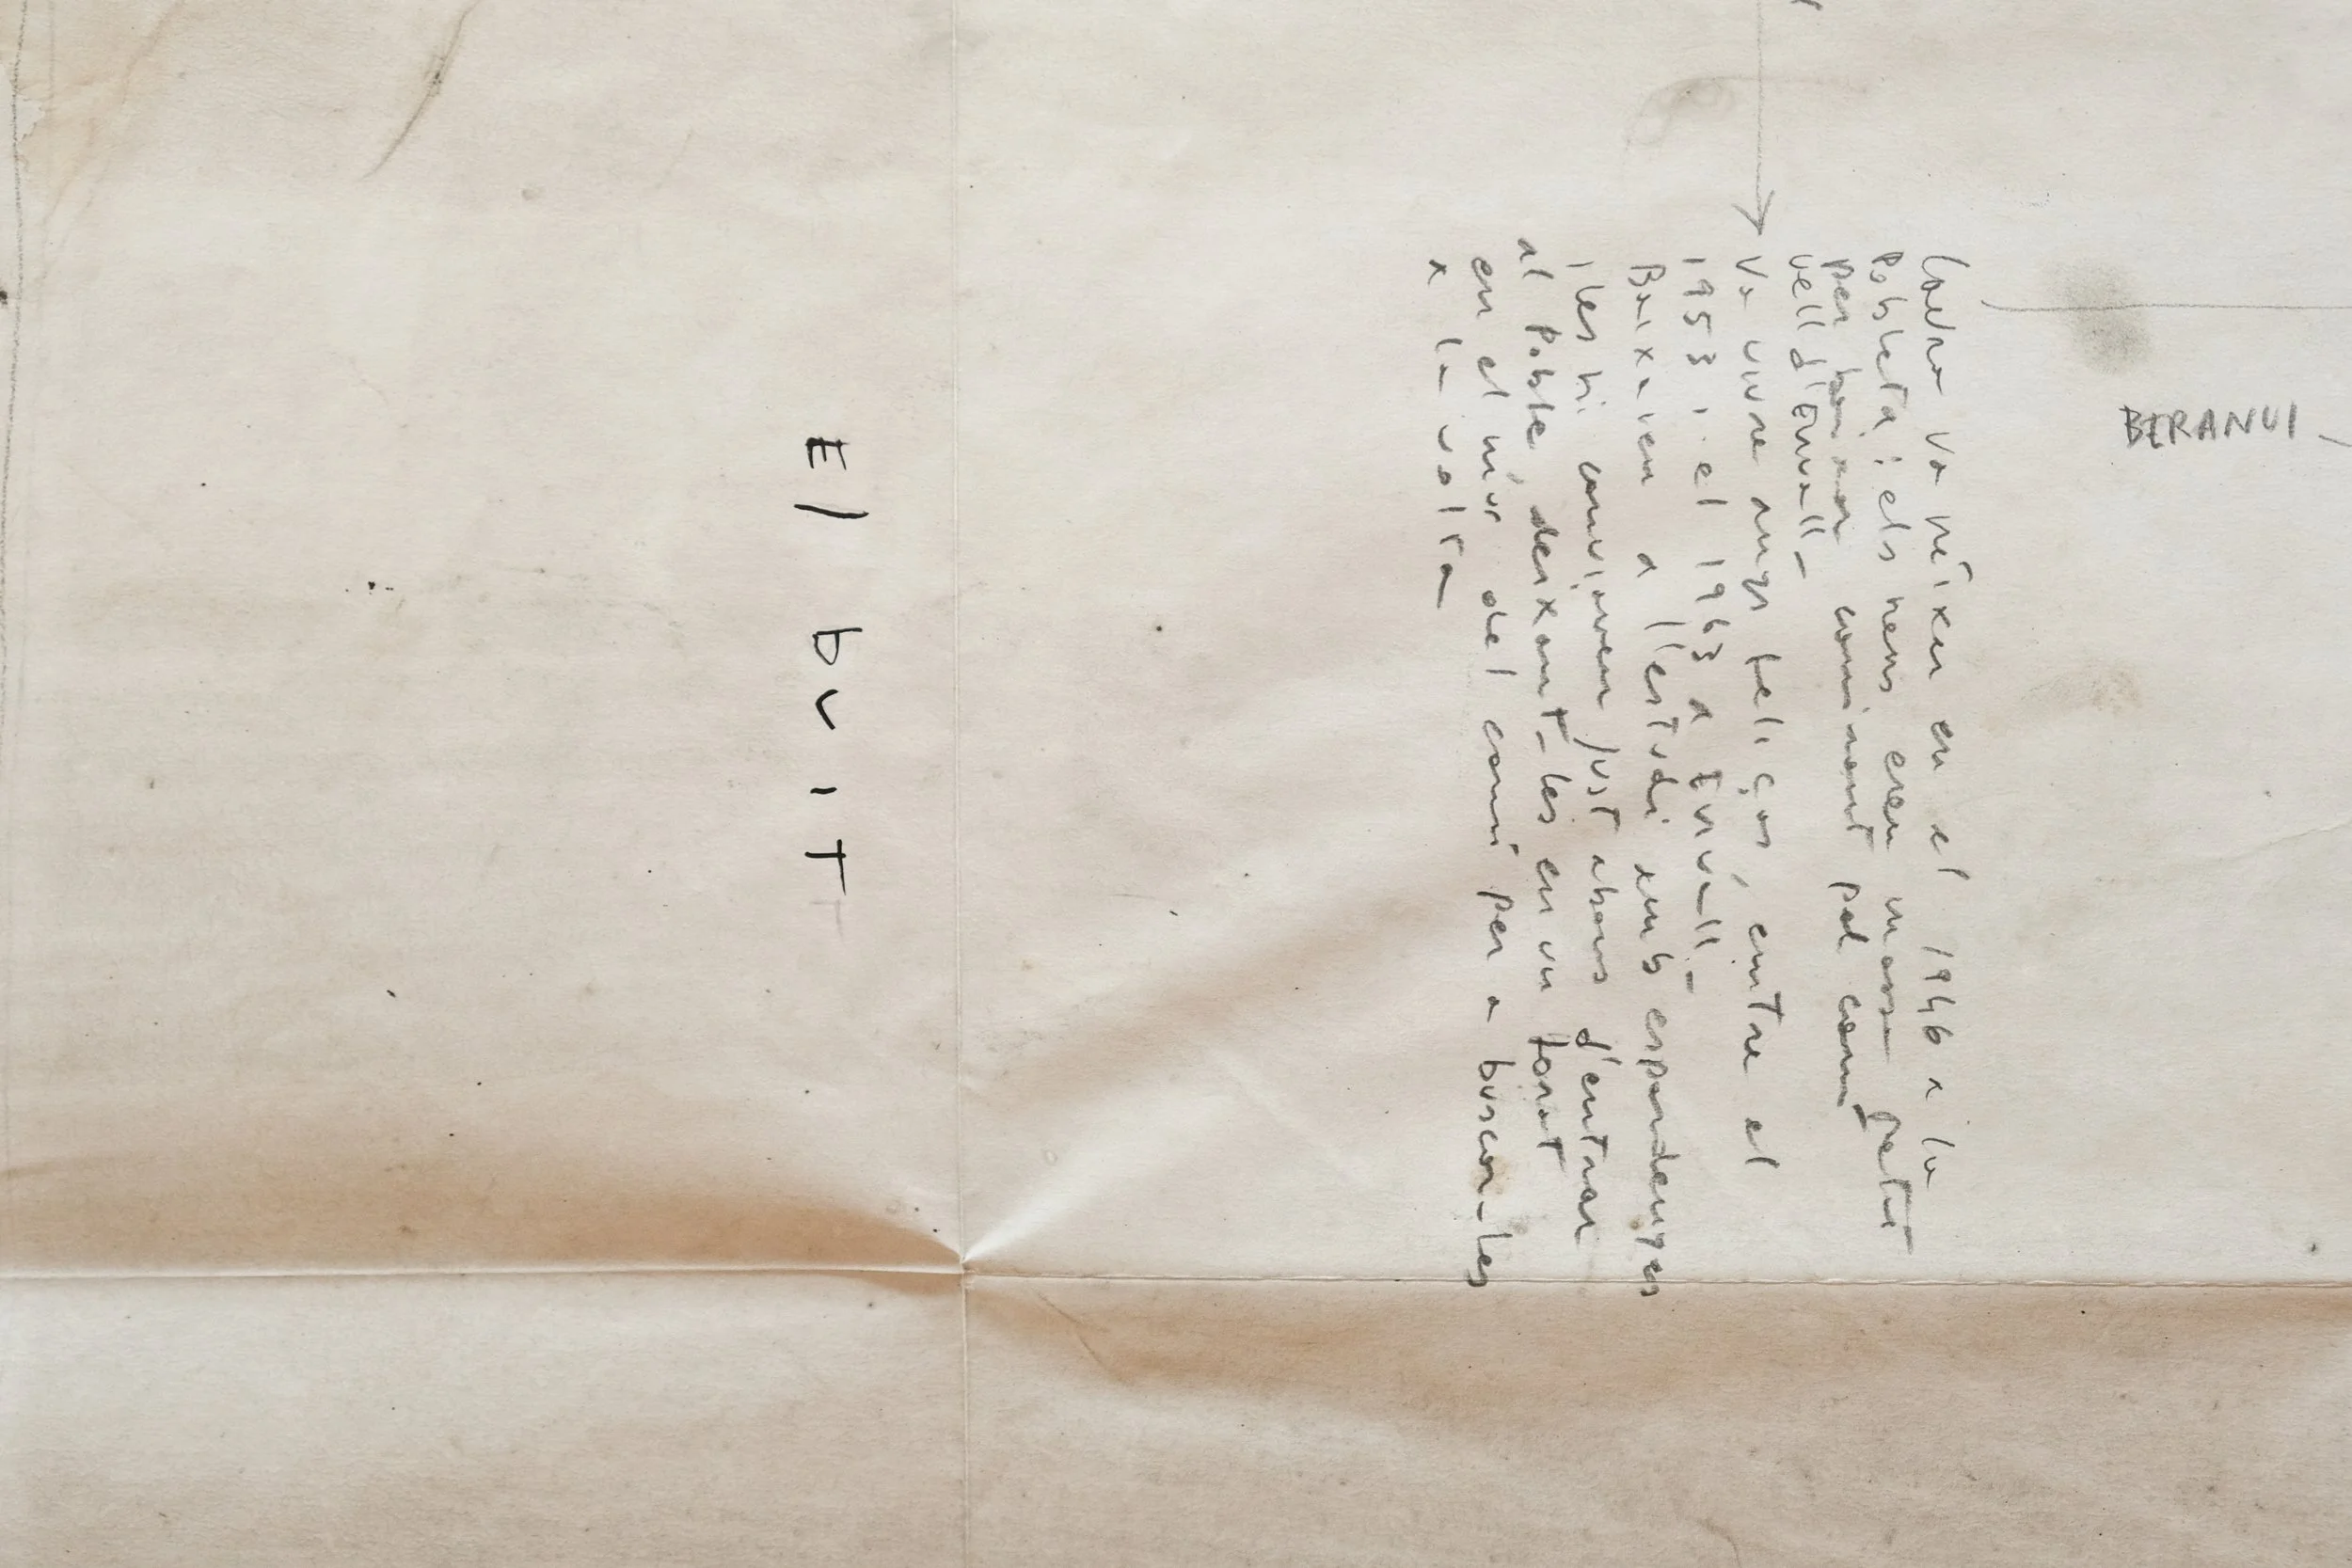 BERANUI
va néixer en el 1946 a la
Pobleta i els nens eren massa petits
per baixar caminant pel camí
vell d'Enviall-
Va viure anys feliços, entre el
1953 i el 1963 a Enviall-
Baixaven a l'estudi amb espardenyes
i les hi canviaven just abans d'entrar
al Poble, deixant-les en un forat
en el mur del camí per a buscar-les
a la volta
El buit